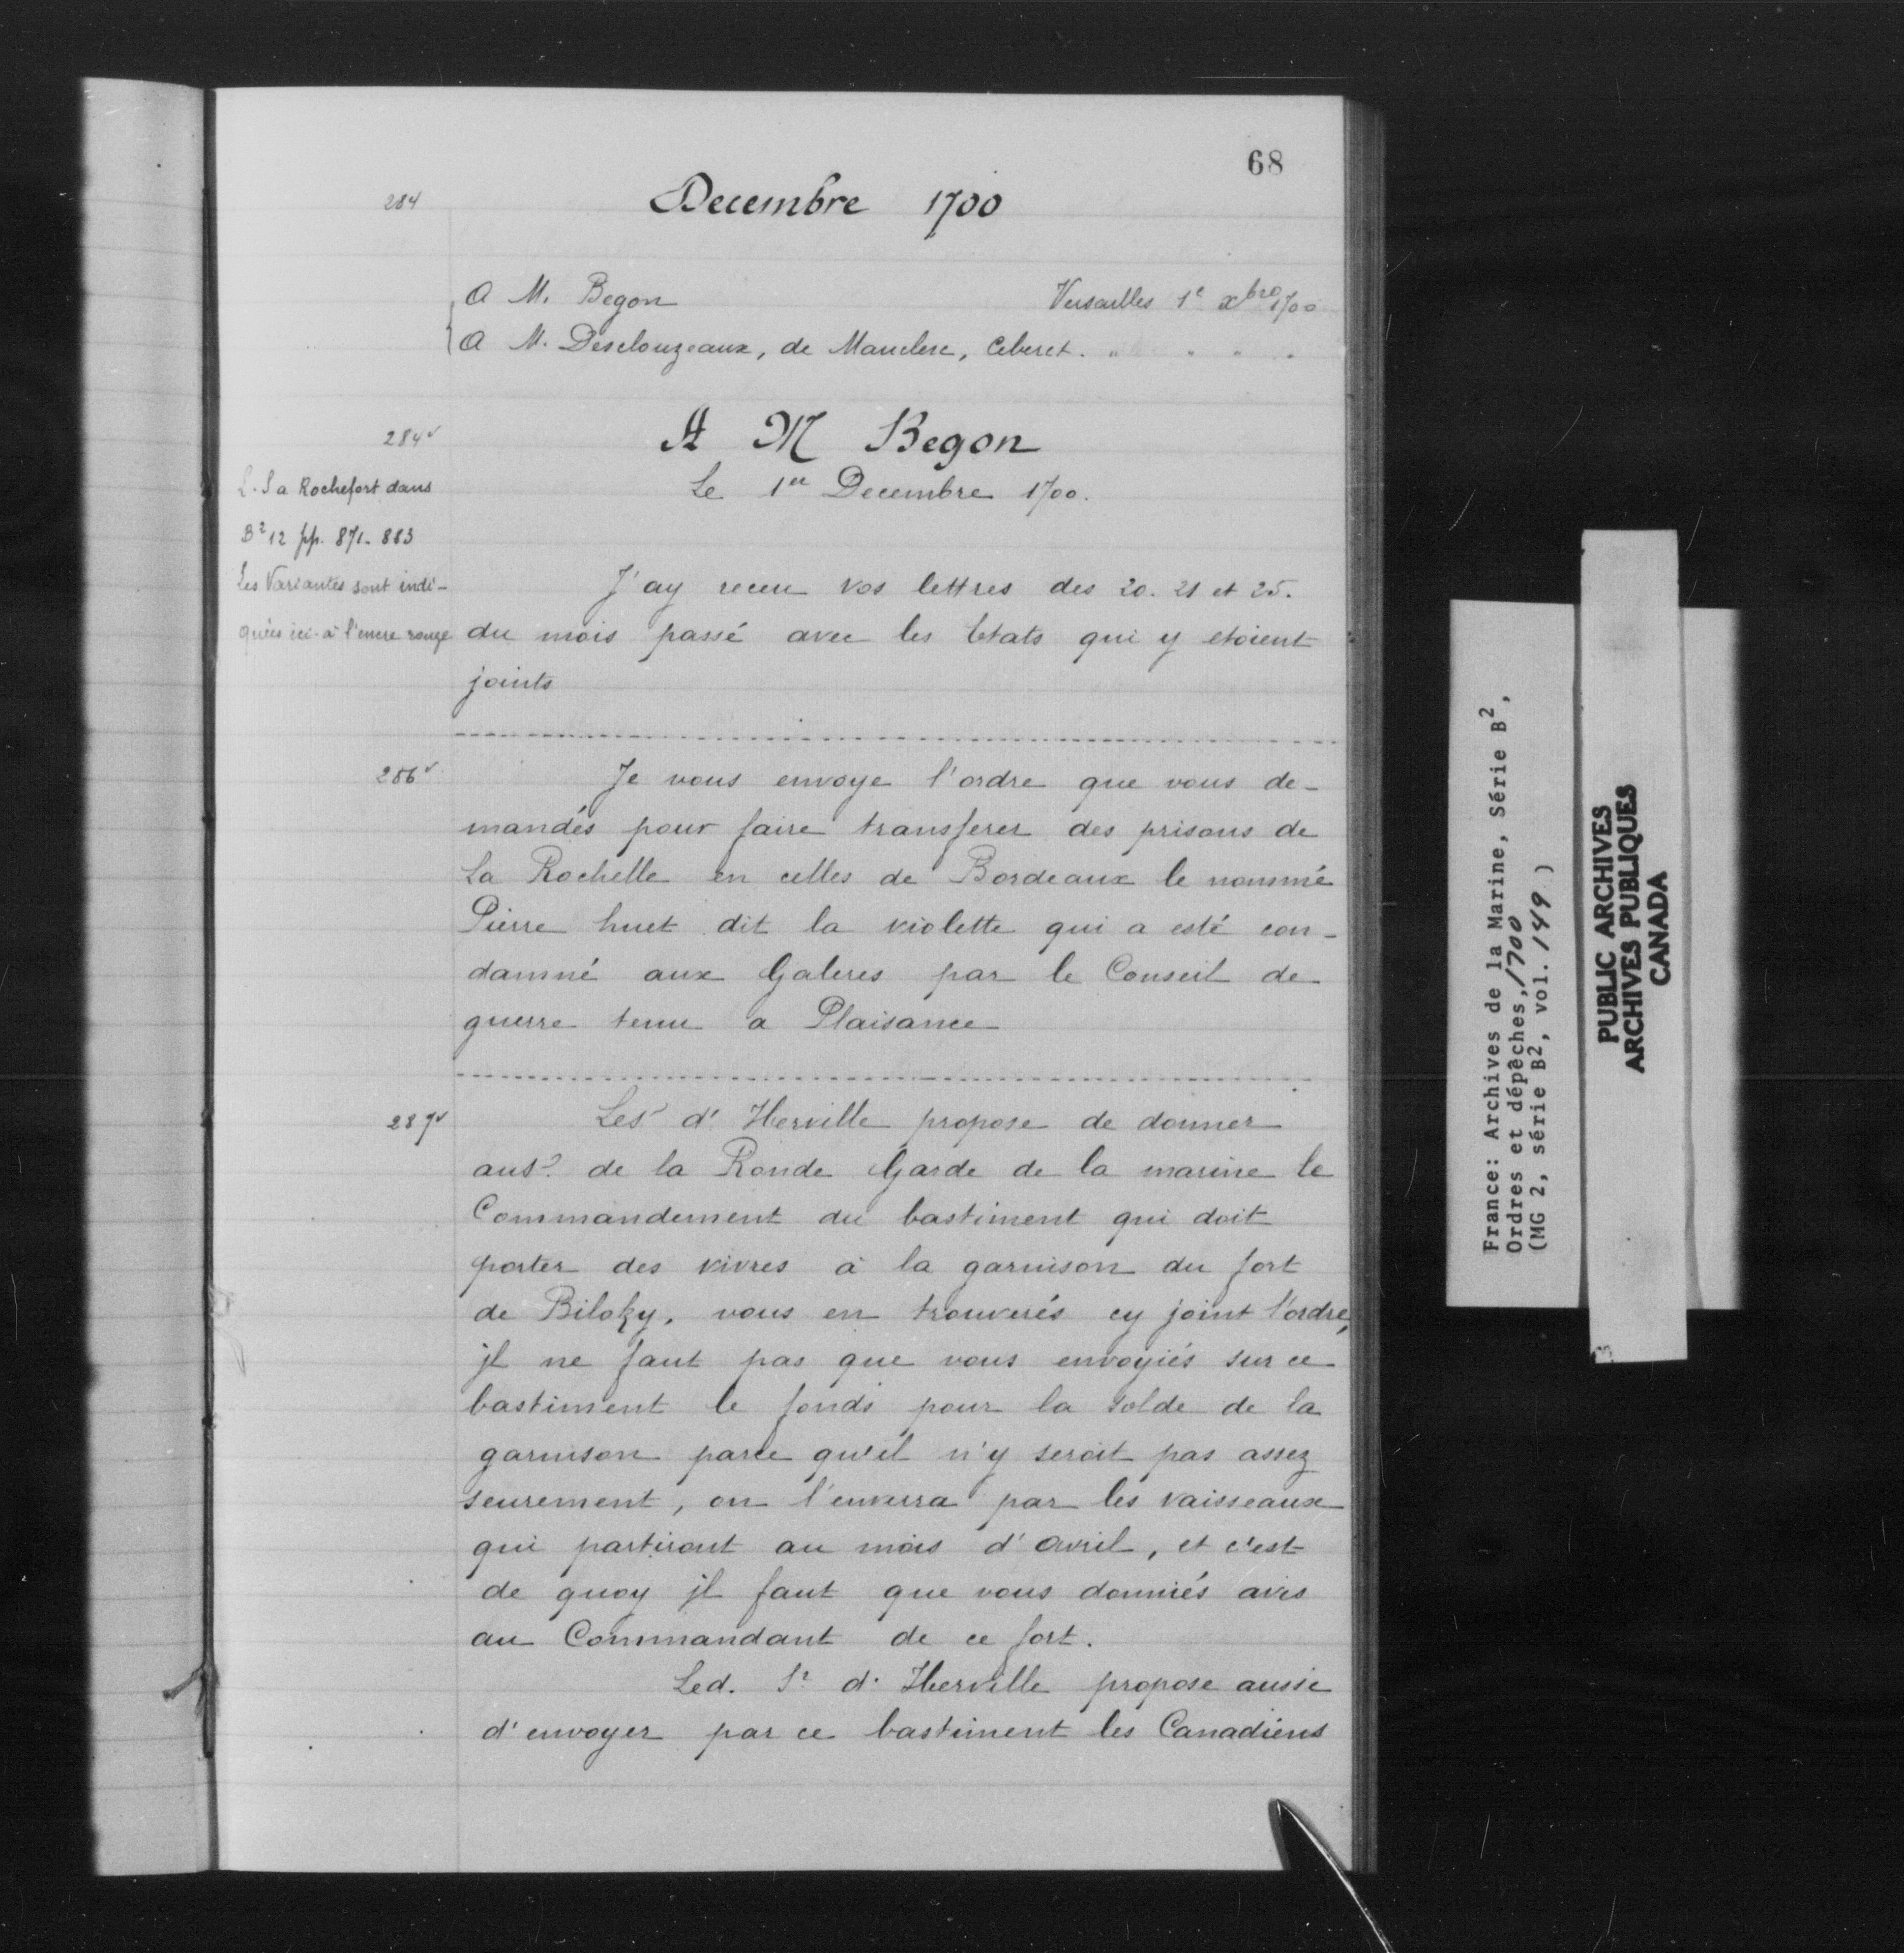 68
284
Decembre 1700
A M. Begon Versailles 1e xbre 1700
A M. Desclouzeaux, de Mauclerc, Ceberet. " " " "
284v
A M Begon
L. S a Rochefort dans
Le 1er Decembre 1700.
B2 12 pp. 871-883
Les Variantes sont indi-
quées ici à l'encre rouge
J'ay receu vos lettres des 20. 21 et 25.
du mois passé avec les Etats qui y etoient
joints
286v
Je vous envoye l'ordre que vous de-
mandés pour faire transferer des prisons de
La Rochelle en celles de Bordeaux le nommé
Pierre huet dit la violette qui a esté con-
damné aux Galeres par le Conseil de
guerre tenu a Plaisance
287v
Le Sr d'Iberville propose de donner
au Sr de la Ronde Garde de la marine le
Commandement du bastiment qui doit
porter des vivres à la garnison du fort
de Biloky, vous en trouverés cy joint l'ordre,
jl ne faut pas que vous envoyiés sur ce
bastiment le fonds pour la solde de la
garnison parce qu'il n'y seroit pas assez
seurement, on l'enverra par les vaisseaux
qui partiront au mois d'avril, et c'est
de quoy jl faut que vous donniés avis
au Commandant de ce fort.
Led. Sr d'Iberville propose aussi
d'envoyer par ce bastiment les Canadiens
France: Archives de la Marine, Série B2,
Ordres et dépêches, 1700
(MG 2, série B2, vol. 149 )
PUBLIC ARCHIVES
ARCHIVES PUBLIQUES
CANADA